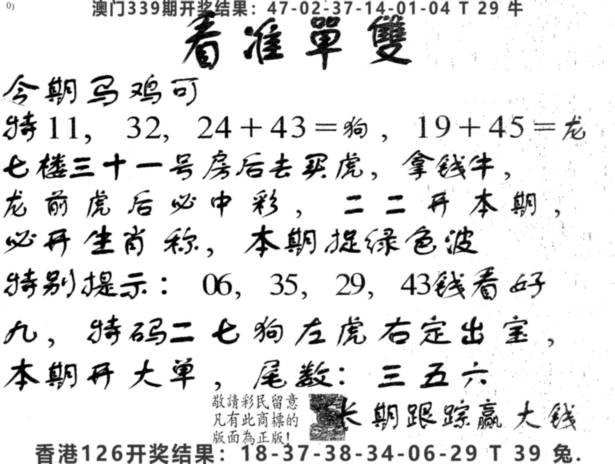 0)
澳门339期开奖结果：47-02-37-14-01-04 T 29 牛
看准單雙
今期马鸡可
特11，32，24＋43＝狗，19＋45＝龙
七楼三十一号房后去买虎，拿钱牛，
龙前虎后必中彩，二二开本期，
必开生肖称，本期捉绿色波
特别提示：06，35，29，43钱看好
九，特码二七狗左虎右定出宝，
本期开大单，尾数：三五六
敬請彩民留意
凡有此商標的
版面為正版！
长期跟踪赢大钱
香港126开奖结果：18-37-38-34-06-29 T 39 兔.